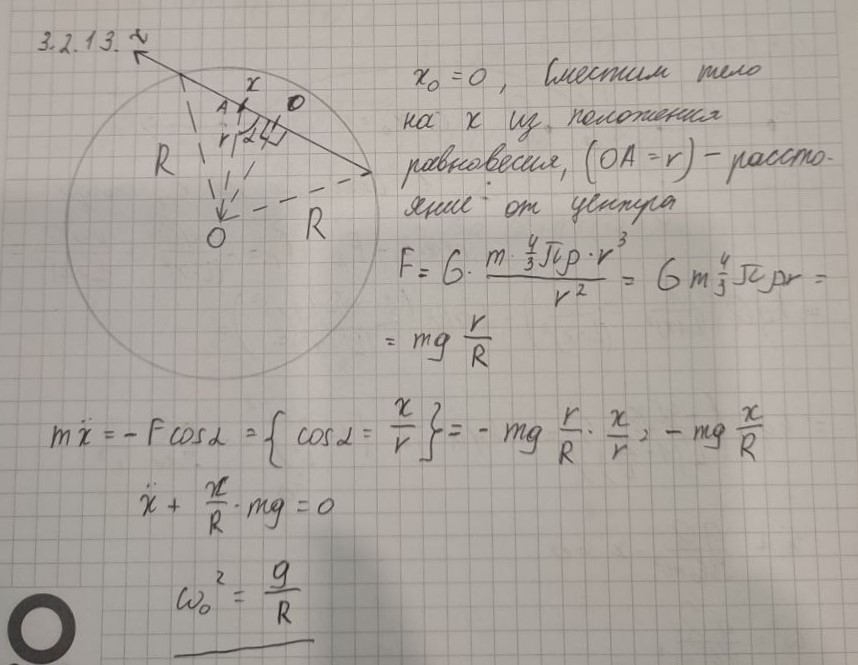 3.2.13.
x
A
0
r
α
R
R
O
x₀ = 0, Сместим тело
на x из положения
равновесия, (OA = r) - рассто-
яние от центра
F = G · (m · 4/3 πρ · r³)/r² = G m 4/3 πρr =
= mg r/R
mẍ = - F cosα = { cosα = x/r } = - mg r/R · x/r = - mg x/R
ẍ + x/R · mg = 0
ω₀² = g/R